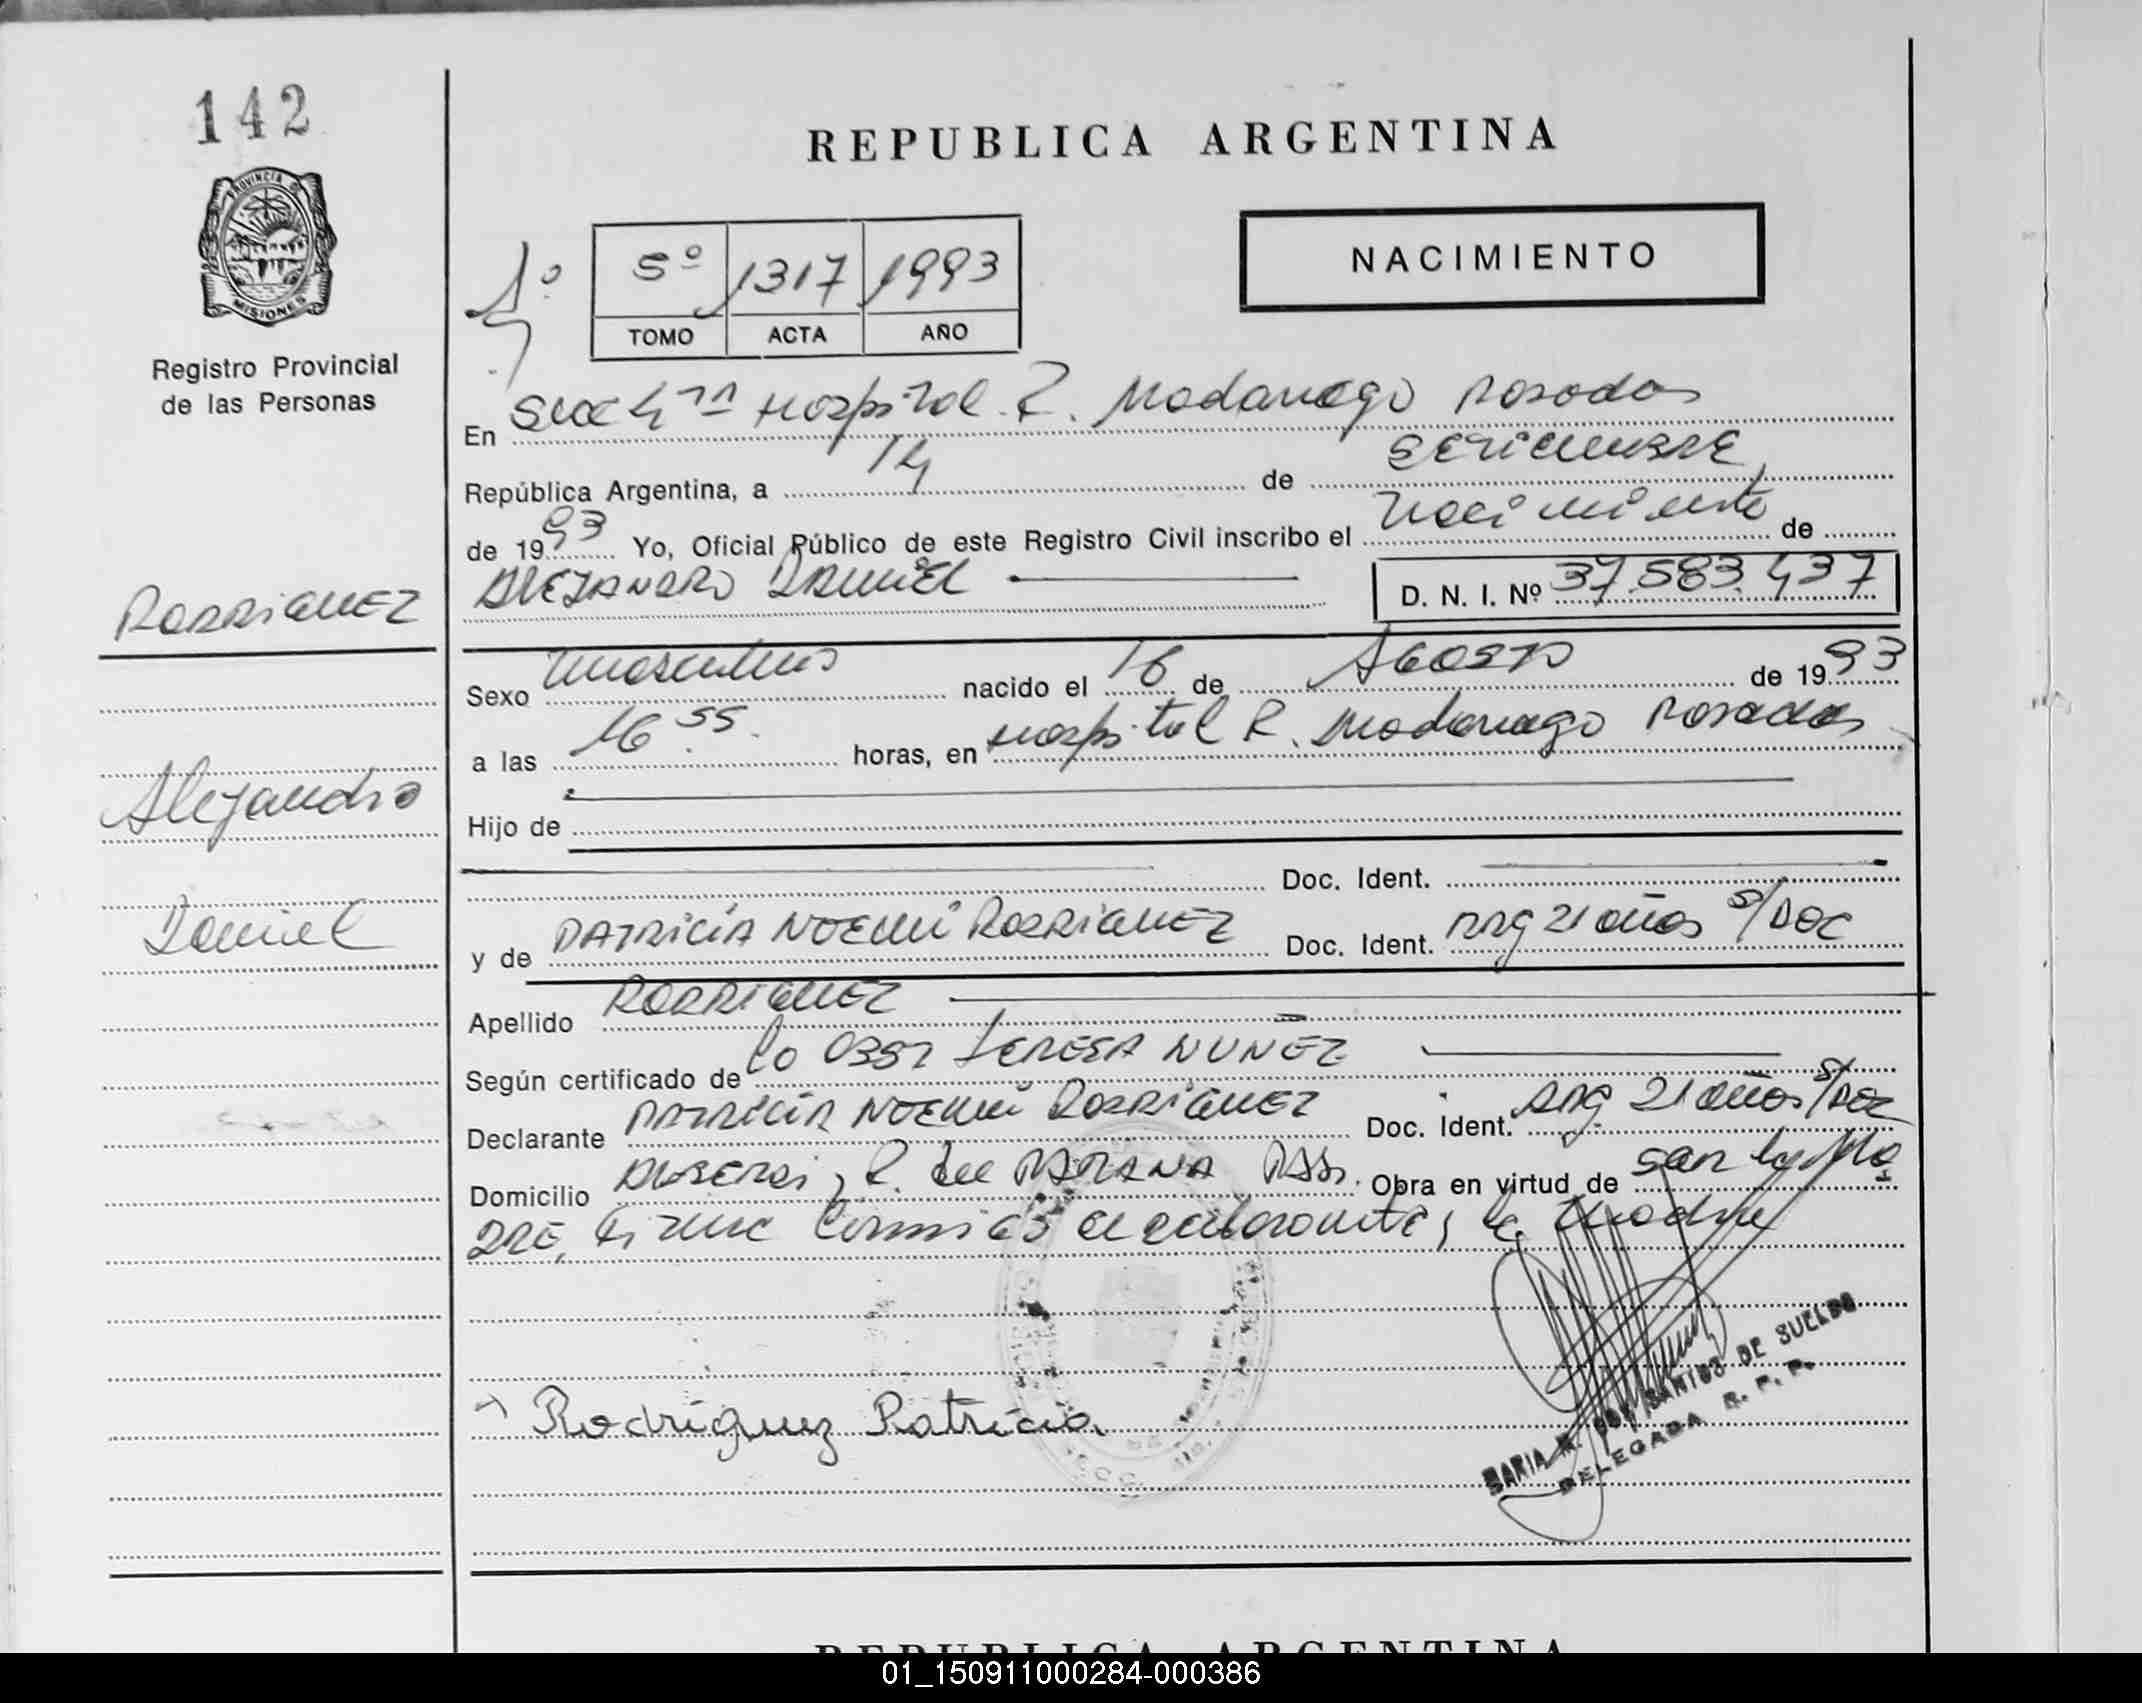 142
REPUBLICA ARGENTINA
PROVINCIA DE
MISIONES
Registro Provincial
de las Personas
NACIMIENTO
1º 5º 1317 1993
TOMO ACTA AÑO
En Secc 4ta Hospital R. Madariaga Posadas
República Argentina, a 14 de SETIEMBRE
de 1993 Yo, Oficial Público de este Registro Civil inscribo el Nacimiento de
ALEJANDRO DANIEL D. N. I. Nº 37.583.437
RODRIGUEZ
Sexo masculino nacido el 16 de AGOSTO de 1993
a las 16 55 horas, en Hospital R. Madariaga Posadas
Alejandro
Hijo de
Doc. Ident.
Daniel
y de PATRICIA NOEMI RODRIGUEZ Doc. Ident. Arg 21 años S/DOC
Apellido RODRIGUEZ
Según certificado de la Obst TERESA NUÑEZ
Declarante PATRICIA NOEMI RODRIGUEZ Doc. Ident. Arg. 21 años S/DOC
Domicilio PARANA Obra en virtud de ser la Ma
DRE, Firme conmigo el la Madre
Rodríguez Patricia
MARIA DE SUELDO
DELEGADA R. P. P.
REPUBLICA ARGENTINA
01_150911000284-000386